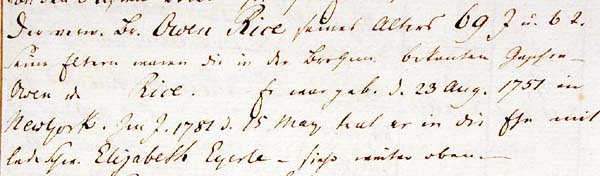 Der verw. Br. Owen Rice seines Alters 69 J u. 6 T.
seine Eltern waren die in der Brüdgem. bekanten Geschw.
Owen u. Rice. Er war geb. d. 23 Aug. 1751 in
Newyork. Im J. 1781 d. 15 May trat er in die Ehe mit
led. Schw. Elizabeth Eyerle – siehe weiter oben. –